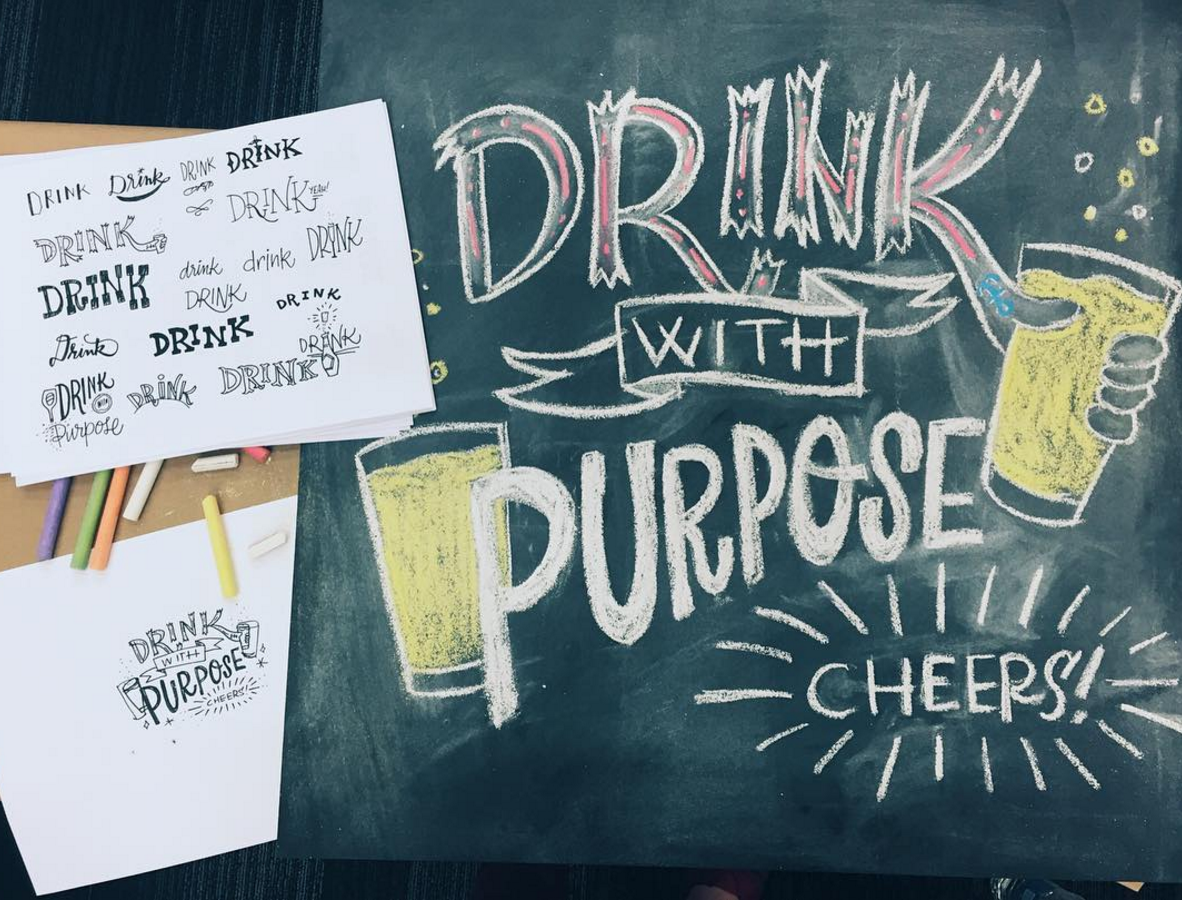 DRINK DRINK
DRINK Drink
DRINK YEAH!
DRINK
drink drink DRINK
DRINK
DRINK DRINK
Drink DRINK DRINK
DRINK DRINK DRINK
Purpose
DRINK
WITH
PURPOSE
CHEERS!
DRINK
WITH
PURPOSE
CHEERS!